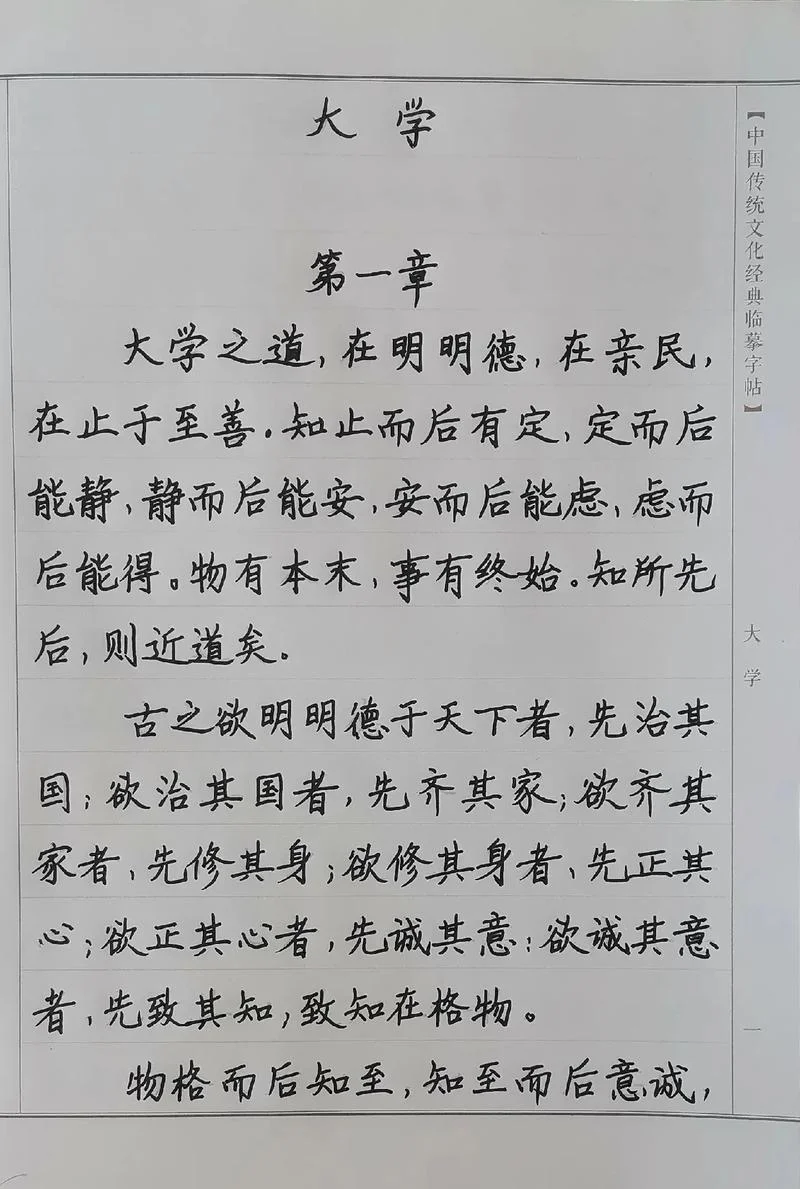 大学
第一章
大学之道，在明明德，在亲民，
在止于至善。知止而后有定，定而后
能静，静而后能安，安而后能虑，虑而
后能得。物有本末，事有终始。知所先
后，则近道矣。
古之欲明明德于天下者，先治其
国；欲治其国者，先齐其家；欲齐其
家者，先修其身；欲修其身者，先正其
心；欲正其心者，先诚其意；欲诚其意
者，先致其知，致知在格物。
物格而后知至，知至而后意诚，
【中国传统文化经典临摹字帖】
大学
一